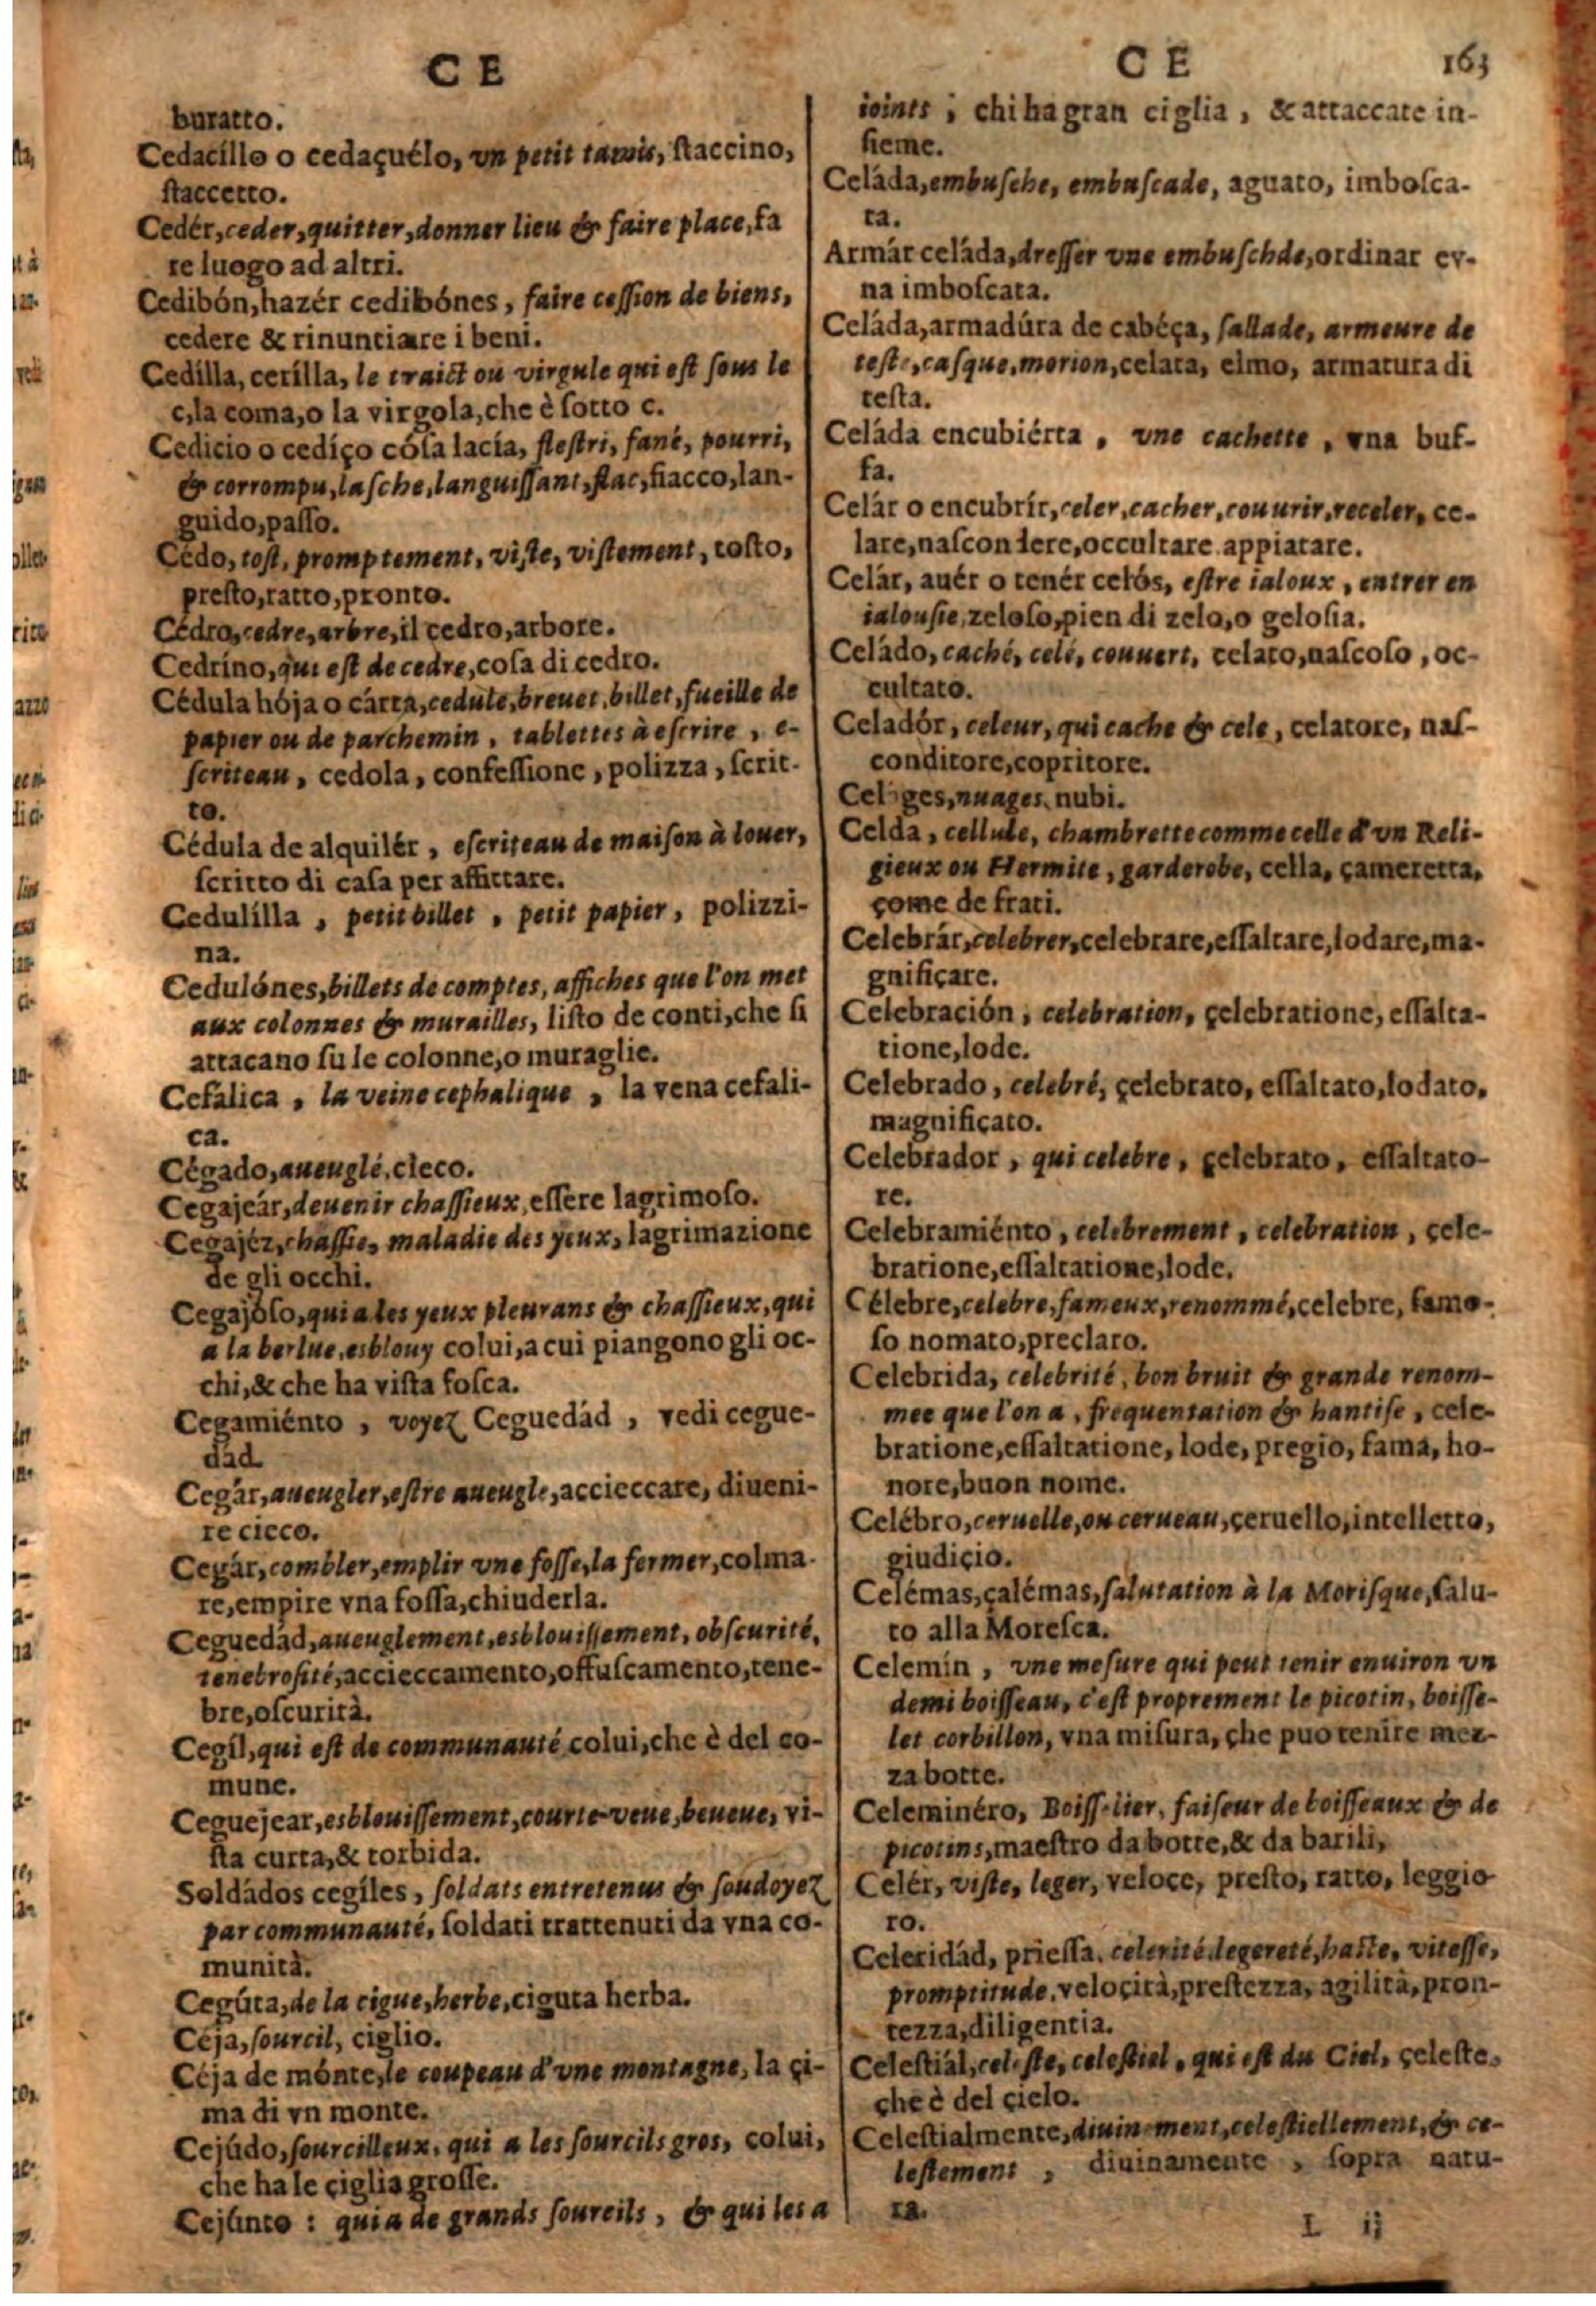 C E
buratto.
Cedacíllo o cedaçuélo, vn petit tamis, ſtaccino,
ſtaccetto.
Cedér, ceder, quitter, donner lieu & faire place, fa
re luogo ad altri.
Cedibón, hazér cedibónes, faire ceſſion de biens,
cedere & rinuntiare i beni.
Cedílla, cerílla, le traict ou virgule qui eſt ſous le
c, la coma, o la virgola, che è ſotto c.
Cedicio o cedíço cóſa lacía, fleſtri, fané, pourri,
& corrompu, laſche, languiſſant, flac, fiacco, lan-
guido, paſſo.
Cédo, toſt, promptement, viſte, viſtement, toſto,
preſto, ratto, pronto.
Cédro, cedre, arbre, il cedro, arbore.
Cedríno, qui eſt de cedre, coſa di cedro.
Cédula hója o cárta, cedule, breuet, billet, fueille de
papier ou de parchemin, tablettes à eſcrire, e-
ſcriteau, cedola, confeſſione, polizza, ſcrit-
to.
Cédula de alquilér, eſcriteau de maiſon à louer,
ſcritto di caſa per affittare.
Cedulílla, petit billet, petit papier, polizzi-
na.
Cedulónes, billets de comptes, affiches que l'on met
aux colonnes & murailles, liſto de conti, che ſi
attacano ſu le colonne, o muraglie.
Cefálica, la veine cephalique, la vena cefali-
ca.
Cégado, aueuglé, cieco.
Cegajeár, deuenir chaſſieux, eſſere lagrimoſo.
Cegajéz, chaſſie, maladie des yeux, lagrimazione
de gli occhi.
Cegajóſo, qui a les yeux pleurans & chaſſieux, qui
a la berlue, esblouy colui, a cui piangono gli oc-
chi, & che ha viſta foſca.
Cegamiénto, voyez Ceguedád, vedi cegue-
dád
Cegár, aueugler, eſtre aueugle, accieccare, diueni-
re cieco.
Cegár, combler, emplir vne foſſe, la fermer, colma-
re, empire vna foſſa, chiuderla.
Ceguedád, aueuglement, esblouiſſement, obſcurité,
tenebroſité, accieccamento, offuſcamento, tene-
bre, oſcurità.
Cegíl, qui eſt de communauté colui, che è del co-
mune.
Ceguejear, esblouiſſement, courte-veue, beueue, vi-
ſta curta, & torbida.
Soldádos cegíles, ſoldats entretenus & ſoudoyez
par communauté, ſoldati trattenuti da vna co-
munità.
Cegúta, de la cigue, herbe, ciguta herba.
Céja, ſourcil, ciglio.
Céja de mónte, le coupeau d'vne montagne, la çi-
ma di vn monte.
Cejúdo, ſourcilleux, qui a les ſourcils gros, colui,
che ha le çiglia groſſe.
Cejúnto: qui a de grands ſourcils, & qui les a
C E 163
ioints; chi ha gran ciglia, & attaccate in-
ſieme.
Celáda, embuſche, embuſcade, aguato, imboſca-
ta.
Armár celáda, dreſſer vne embuſchde, ordinar ev-
na imboſcata.
Celáda, armadúra de cabéça, ſallade, armeure de
teſte, caſque, morion, celata, elmo, armatura di
teſta.
Celáda encubiérta, vne cachette, vna buf-
fa.
Celár o encubrír, celer, cacher, couurir, receler, ce-
lare, naſcondere, occultare appiatare.
Celár, auér o tenér celós, eſtre ialoux, entrer en
ialouſie, zeloſo, pien di zelo, o geloſia.
Celádo, caché, celé, couuert, celato, naſcoſo, oc-
cultato.
Celadór, celeur, qui cache & cele, celatore, naſ-
conditore, copritore.
Celages, nuages, nubi.
Celda, cellule, chambrette comme celle d'vn Reli-
gieux ou Hermite, garderobe, cella, çameretta,
çome de frati.
Celebrár, celebrer, celebrare, eſſaltare, lodare, ma-
gnifiçare.
Celebración, celebration, çelebratione, eſſalta-
tione, lode.
Celebrado, celebré, çelebrato, eſſaltato, lodato,
magnifiçato.
Celebrador, qui celebre, çelebrato, eſſaltato-
re.
Celebramiénto, celebrement, celebration, çele-
bratione, eſſaltatione, lode.
Célebre, celebre, fameux, renommé, celebre, famo-
ſo nomato, preclaro.
Celebrida, celebrité, bon bruit & grande renom-
mee que l'on a, frequentation & hantiſe, cele-
bratione, eſſaltatione, lode, pregio, fama, ho-
nore, buon nome.
Celébro, ceruelle, ou cerueau, çeruello, intelletto,
giudiçio.
Celémas, çalémas, ſalutation à la Moriſque, ſalu-
to alla Moreſca.
Celemín, vne meſure qui peut tenir enuiron vn
demi boiſſeau, c'eſt proprement le picotin, boiſſe-
let corbillon, vna miſura, çhe puo tenire mez-
za botte.
Celeminéro, Boiſſelier, faiſeur de boiſſeaux & de
picotins, maeſtro da botte, & da barili,
Celér, viſte, leger, veloçe, preſto, ratto, leggio-
ro.
Celeridád, prieſſa, celerité legereté, haſte, viteſſe,
promptitude, veloçità, preſtezza, agilità, pron-
tezza, diligentia.
Celeſtiál, celeſte, celeſtiel, qui eſt du Ciel, çeleſte,
çhe è del çielo.
Celeſtialmente, diuinement, celeſtiellement, & ce-
leſtement, diuinamente, ſopra natu-
ra.
L ij